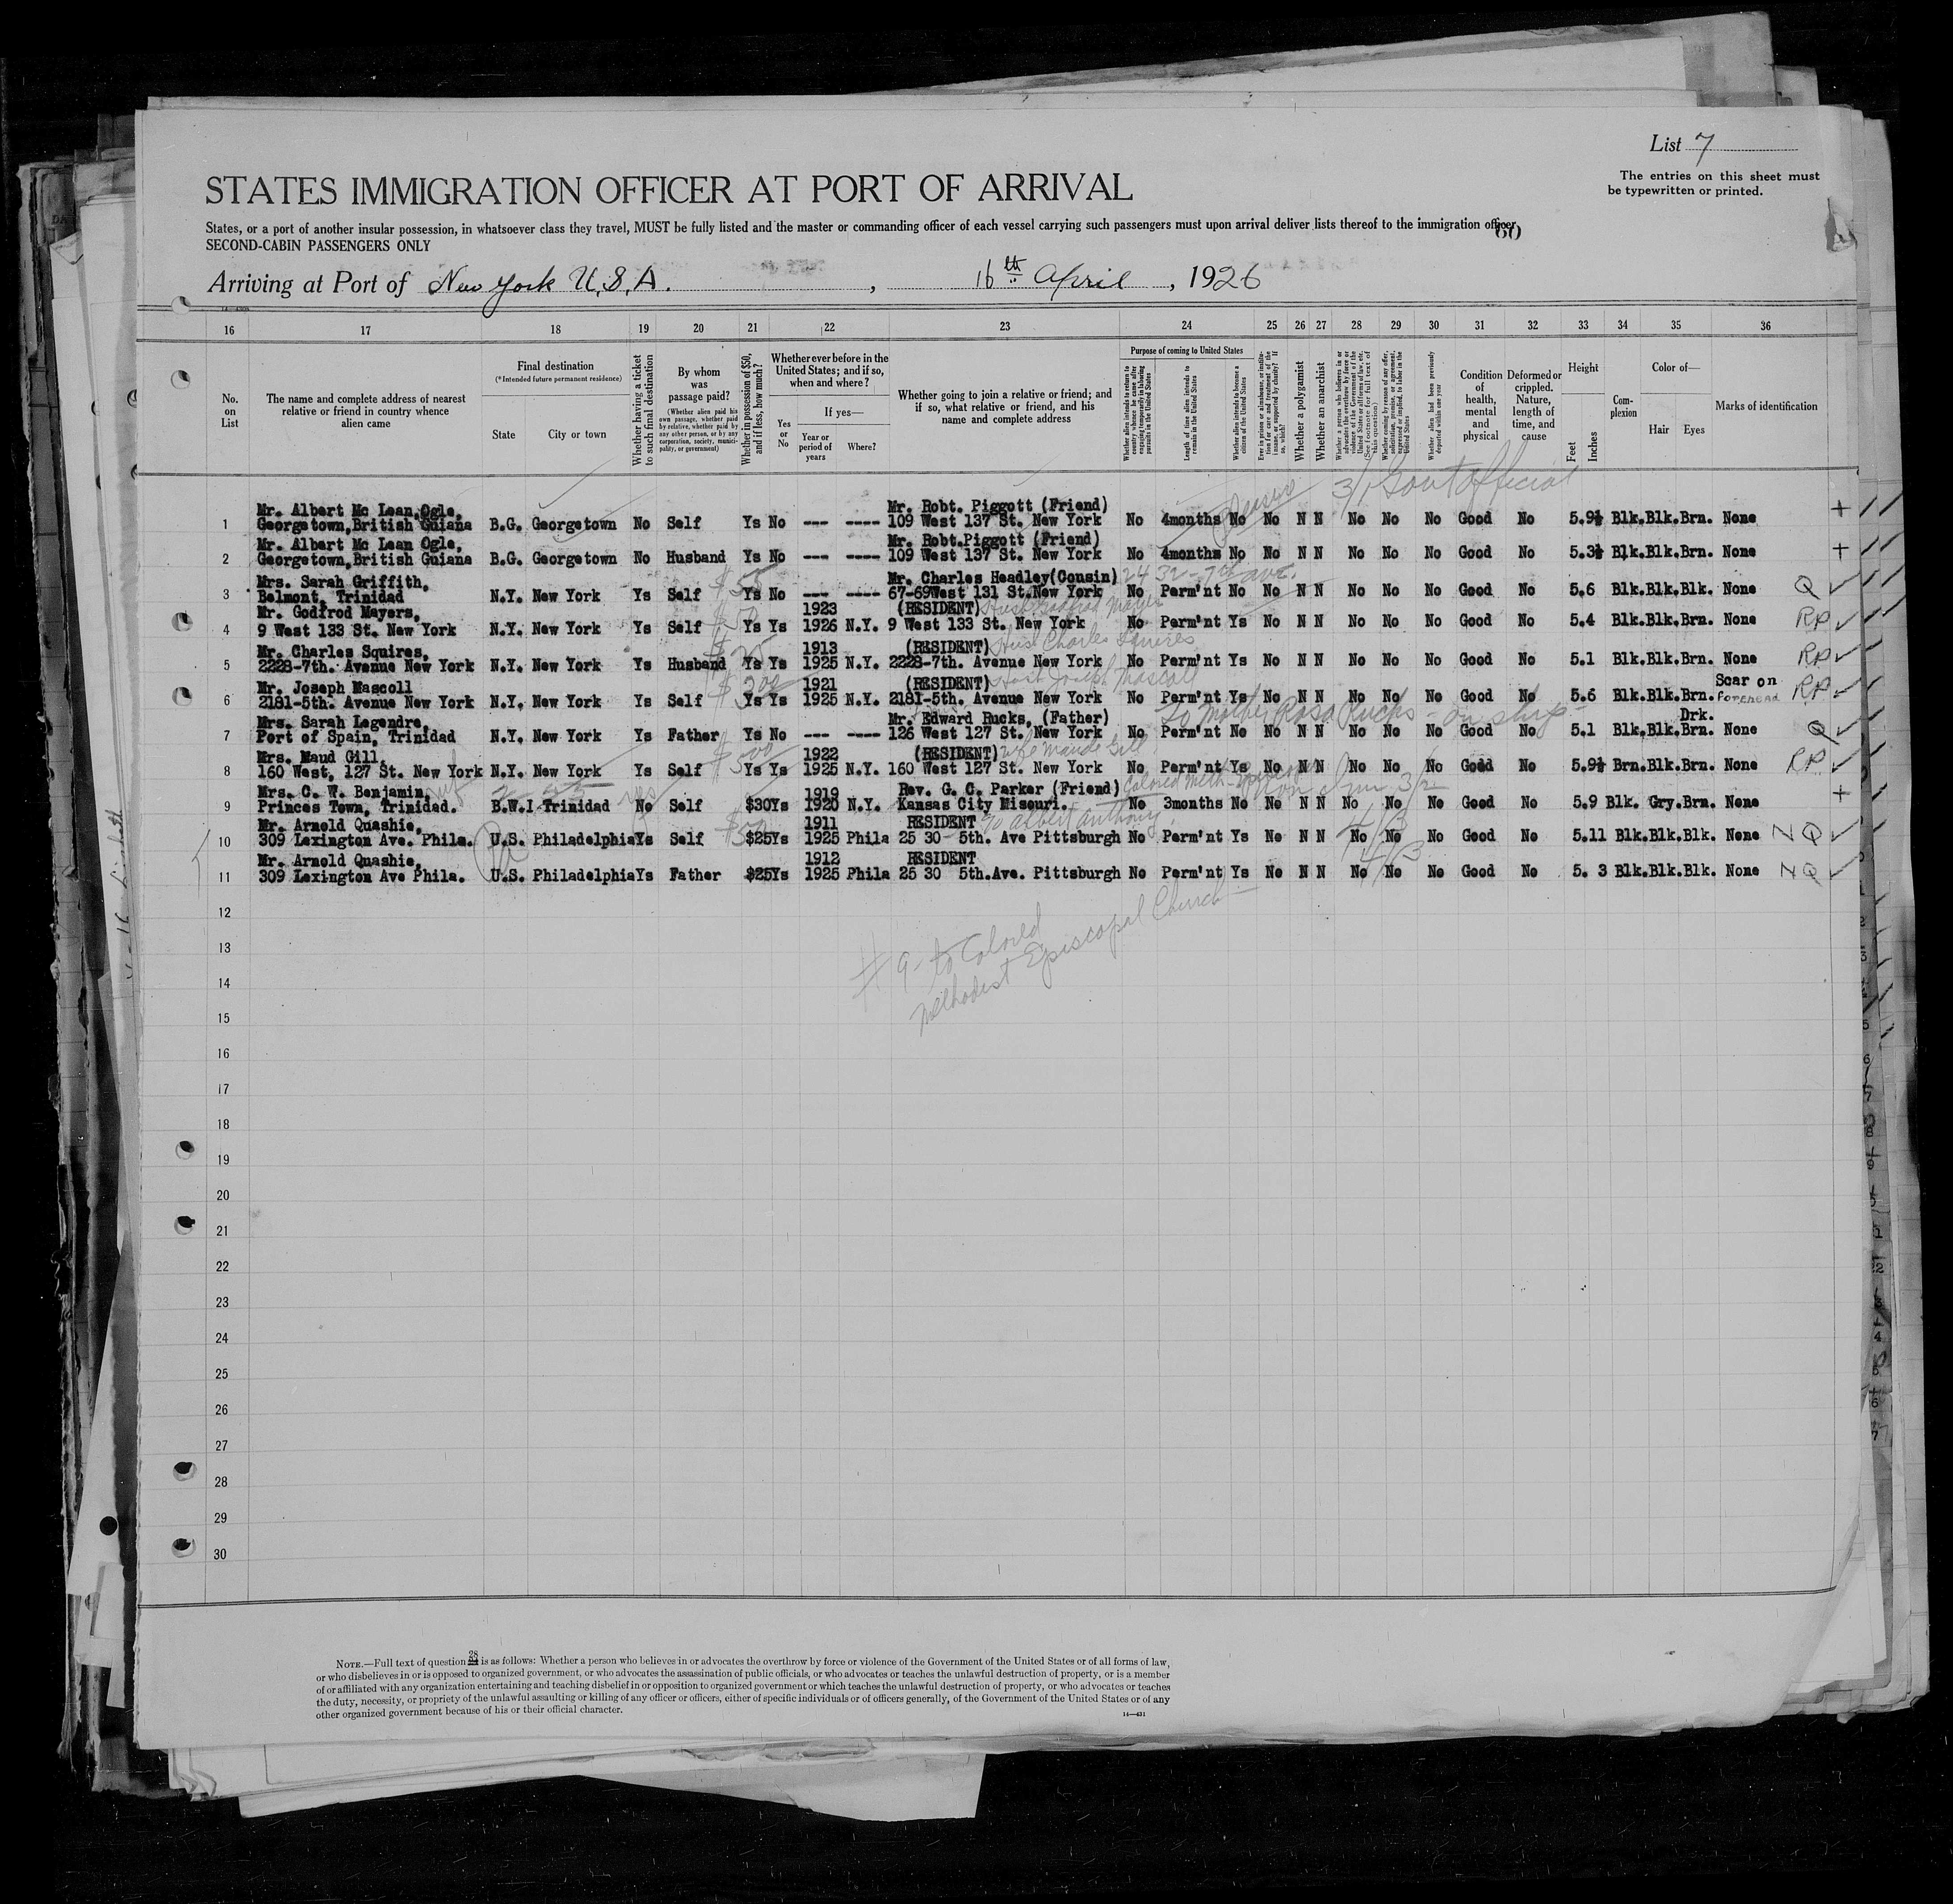 List 7
The entries on this sheet must
be typewritten or printed.
STATES IMMIGRATION OFFICER AT PORT OF ARRIVAL
States, or a port of another insular possession, in whatsoever class they travel, MUST be fully listed and the master or commanding officer of each vessel carrying such passengers must upon arrival deliver lists thereof to the immigration officer
60
SECOND-CABIN PASSENGERS ONLY
Arriving at Port of New York U.S.A. , 16th April , 1926
16 17 18 19 20 21 22 23 24 25 26 27 28 29 30 31 32 33 34 35 36
No. on List
The name and complete address of nearest relative or friend in country whence alien came
Final destination (*Intended future permanent residence) State City or town
Whether having a ticket to such final destination
By whom was passage paid? (Whether alien paid his own passage, whether paid by relative, whether paid by any other person, or by any corporation, society, municipality, or government)
Whether in possession of $50, and if less, how much?
Whether ever before in the United States; and if so, when and where? Yes or No If yes— Year or period of years Where?
Whether going to join a relative or friend; and if so, what relative or friend, and his name and complete address
Purpose of coming to United States
Whether alien intends to return to country whence he came after engaging temporarily in laboring pursuits in the United States
Length of time alien intends to remain in the United States
Whether alien intends to become a citizen of the United States
Ever in prison or almshouse, or institution for care and treatment of the insane, or supported by charity? If so, which?
Whether a polygamist
Whether an anarchist
Whether a person who believes in or advocates the overthrow by force or violence of the Government of the United States or all forms of law, etc. (See footnote for full text of this question)
Whether coming by reason of any offer, solicitation, promise, or agreement, expressed or implied, to labor in the United States
Whether alien has been previously deported within one year
Condition of health, mental and physical
Deformed or crippled. Nature, length of time, and cause
Height Feet Inches
Complexion
Color of— Hair Eyes
Marks of identification
3/1 Govt Official
Pleasure
Mr. Albert Mc Lean,Ogle, Mr. Robt. Piggott (Friend)
1 Georgetown,British Guiana B.G. Georgetown No Self Ys No --- ---- 109 West 137 St. New York No 4months No No N N No No No Good No 5.9½ Blk.Blk.Brn. None +
Mr. Albert Mc Lean Ogle, Mr. Robt.Piggott (Friend)
2 Georgetown,British Guiana B.G. Georgetown No Husband Ys No --- ---- 109 West 137 St. New York No 4months No No N N No No No Good No 5.3½ Blk.Blk.Brn. None +
Mrs. Sarah Griffith, $55 Mr. Charles Headley(Cousin) 2432-7th ave.
3 Belmont, Trinidad N.Y. New York Ys Self Ys No --- ---- 67-69West 131 St.New York No Perm'nt No No N N No No No Good No 5.6 Blk.Blk.Blk. None Q ✓
Mr. Godfrod Mayers, $50 1923 (RESIDENT) Husb Godfrod Mayer
4 9 West 133 St. New York N.Y. New York Ys Self Ys Ys 1926 N.Y. 9 West 133 St. New York No Perm'nt Ys No N N No No No Good No 5.4 Blk.Blk.Brn. None RP ✓
Mr. Charles Squires, $25 1913 (RESIDENT) Husb Charles Squires
5 2228-7th. Avenue New York N.Y. New York Ys Husband Ys Ys 1925 N.Y. 2228-7th. Avenue New York No Perm'nt Ys No N N No No No Good No 5.1 Blk.Blk.Brn. None RP ✓
Mr. Joseph Mascoll $300 1921 (RESIDENT) Husb Joseph Mascoll Scar on
6 2181-5th. Avenue New York N.Y. New York Ys Self Ys Ys 1925 N.Y. 2181-5th. Avenue New York No Perm'nt Ys No N N No No No Good No 5.6 Blk.Blk.Brn. Forehead RP ✓
Mrs. Sarah Legendre, Mr. Edward Rucks, (Father) To Mother Rosa Rucks - on ship - Drk.
7 Port of Spain, Trinidad N.Y. New York Ys Father Ys No --- ---- 126 West 127 St. New York No Perm'nt No No N N No No No Good No 5.1 Blk.Blk.Brn. None Q ✓
Mrs. Maud Gill, $500 1922 (RESIDENT) Wife Maude Gill
8 160 West, 127 St. New York N.Y. New York Ys Self Ys Ys 1925 N.Y. 160 West 127 St. New York No Perm'nt Ys No N N No No No Good No 5.9½ Brn.Blk.Brn. None RP ✓
Mrs. C. W. Benjamin, wife yes 1919 Rev. G. C. Parker (Friend) Colored Meth-
9 Princes Town, Trinidad. B.W.I Trinidad No Self $30Ys 1920 N.Y. Kansas City Misouri. No 3months No No N N No No No Good No 5.9 Blk. Gry.Brn. None +
Mr. Arnold Quashie, 1911 RESIDENT % Albert Anthony 4/3
10 309 Lexington Ave. Phila. U.S. Philadelphia Ys Self $25Ys 1925 Phila 25 30- 5th. Ave Pittsburgh No Perm'nt Ys No N N No No No Good No 5.11 Blk.Blk.Blk. None N Q ✓
Mr. Arnold Quashie, 1912 RESIDENT 4/3
11 309 Lexington Ave Phila. U.S. Philadelphia Ys Father $25Ys 1925 Phila 25 30 5th.Ave. Pittsburgh No Perm'nt Ys No N N No No No Good No 5. 3 Blk.Blk.Blk. None N Q ✓
12
# 9 - to Colored
Methodist Episcopal Church -
13
14
15
16
17
18
19
20
21
22
23
24
25
26
27
28
29
30
NOTE.—Full text of question 28 is as follows: Whether a person who believes in or advocates the overthrow by force or violence of the Government of the United States or of all forms of law,
or who disbelieves in or is opposed to organized government, or who advocates the assassination of public officials, or who advocates or teaches the unlawful destruction of property, or is a member
of or affiliated with any organization entertaining and teaching disbelief in or opposition to organized government or which teaches the unlawful destruction of property, or who advocates or teaches
the duty, necessity, or propriety of the unlawful assaulting or killing of any officer or officers, either of specific individuals or of officers generally, of the Government of the United States or of any
other organized government because of his or their official character.
14—431